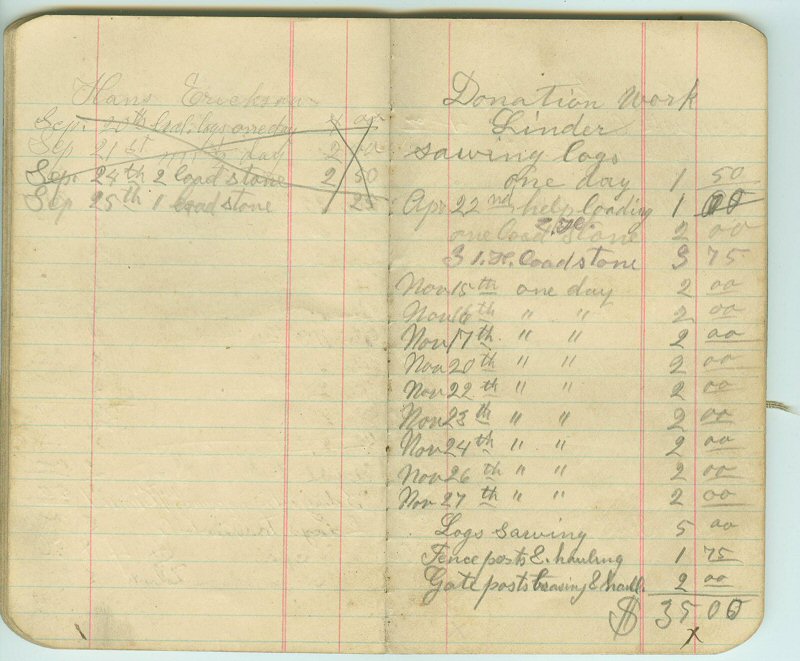 Hans Erickson
Sep. 20th haul. logs one day 2 00
Sep 21st " " day 2 00
Sep. 24th 2 load stone 2 50
Sep 25th 1 load stone 1 25
Donation Work
Linder
sawing logs
one day 1 50
Apr 22nd help loading 1 00
one load stone 2 00
3 1.H. load stone 3 75
Nov 15th one day 2 00
Nov 16th " " 2 00
Nov 17th " " 2 00
Nov 20th " " 2 00
Nov 22th " " 2 00
Nov 23th " " 2 00
Nov 24th " " 2 00
Nov 26th " " 2 00
Nov 27th " " 2 00
Logs sawing 5 00
Fence posts & hauling 1 75
Gate posts & haul. 2 00
$ 35 00
x